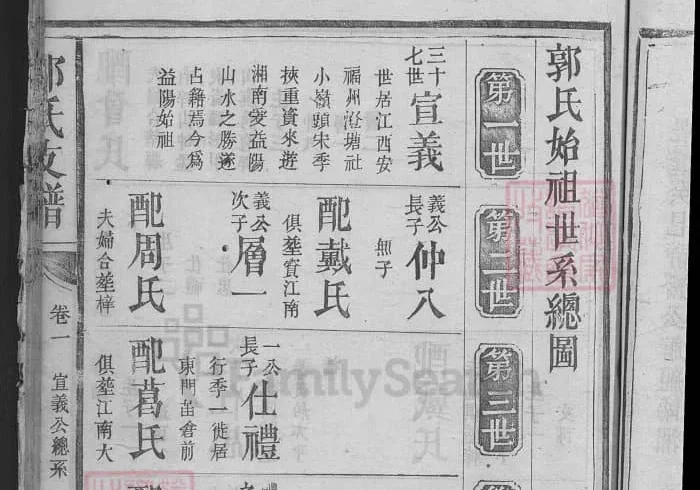 郭氏始祖世系總圖
第一世
第二世
第三世
三十七世
宣義
世居江西安
福州澄塘社
小嶺頭宋季
挾重資來遊
湘南愛益陽
山水之勝遂
占籍焉今爲
益陽始祖
義公長子
仲八
無子
配戴氏
俱塟實江南
義公次子
層一
配周氏
夫婦合塟梓
一公長子
仕禮
行季一徙居
東門苗倉前
配葛氏
俱塟江南大
配
郭氏支譜
卷一
宣義公總系
FamilySearch